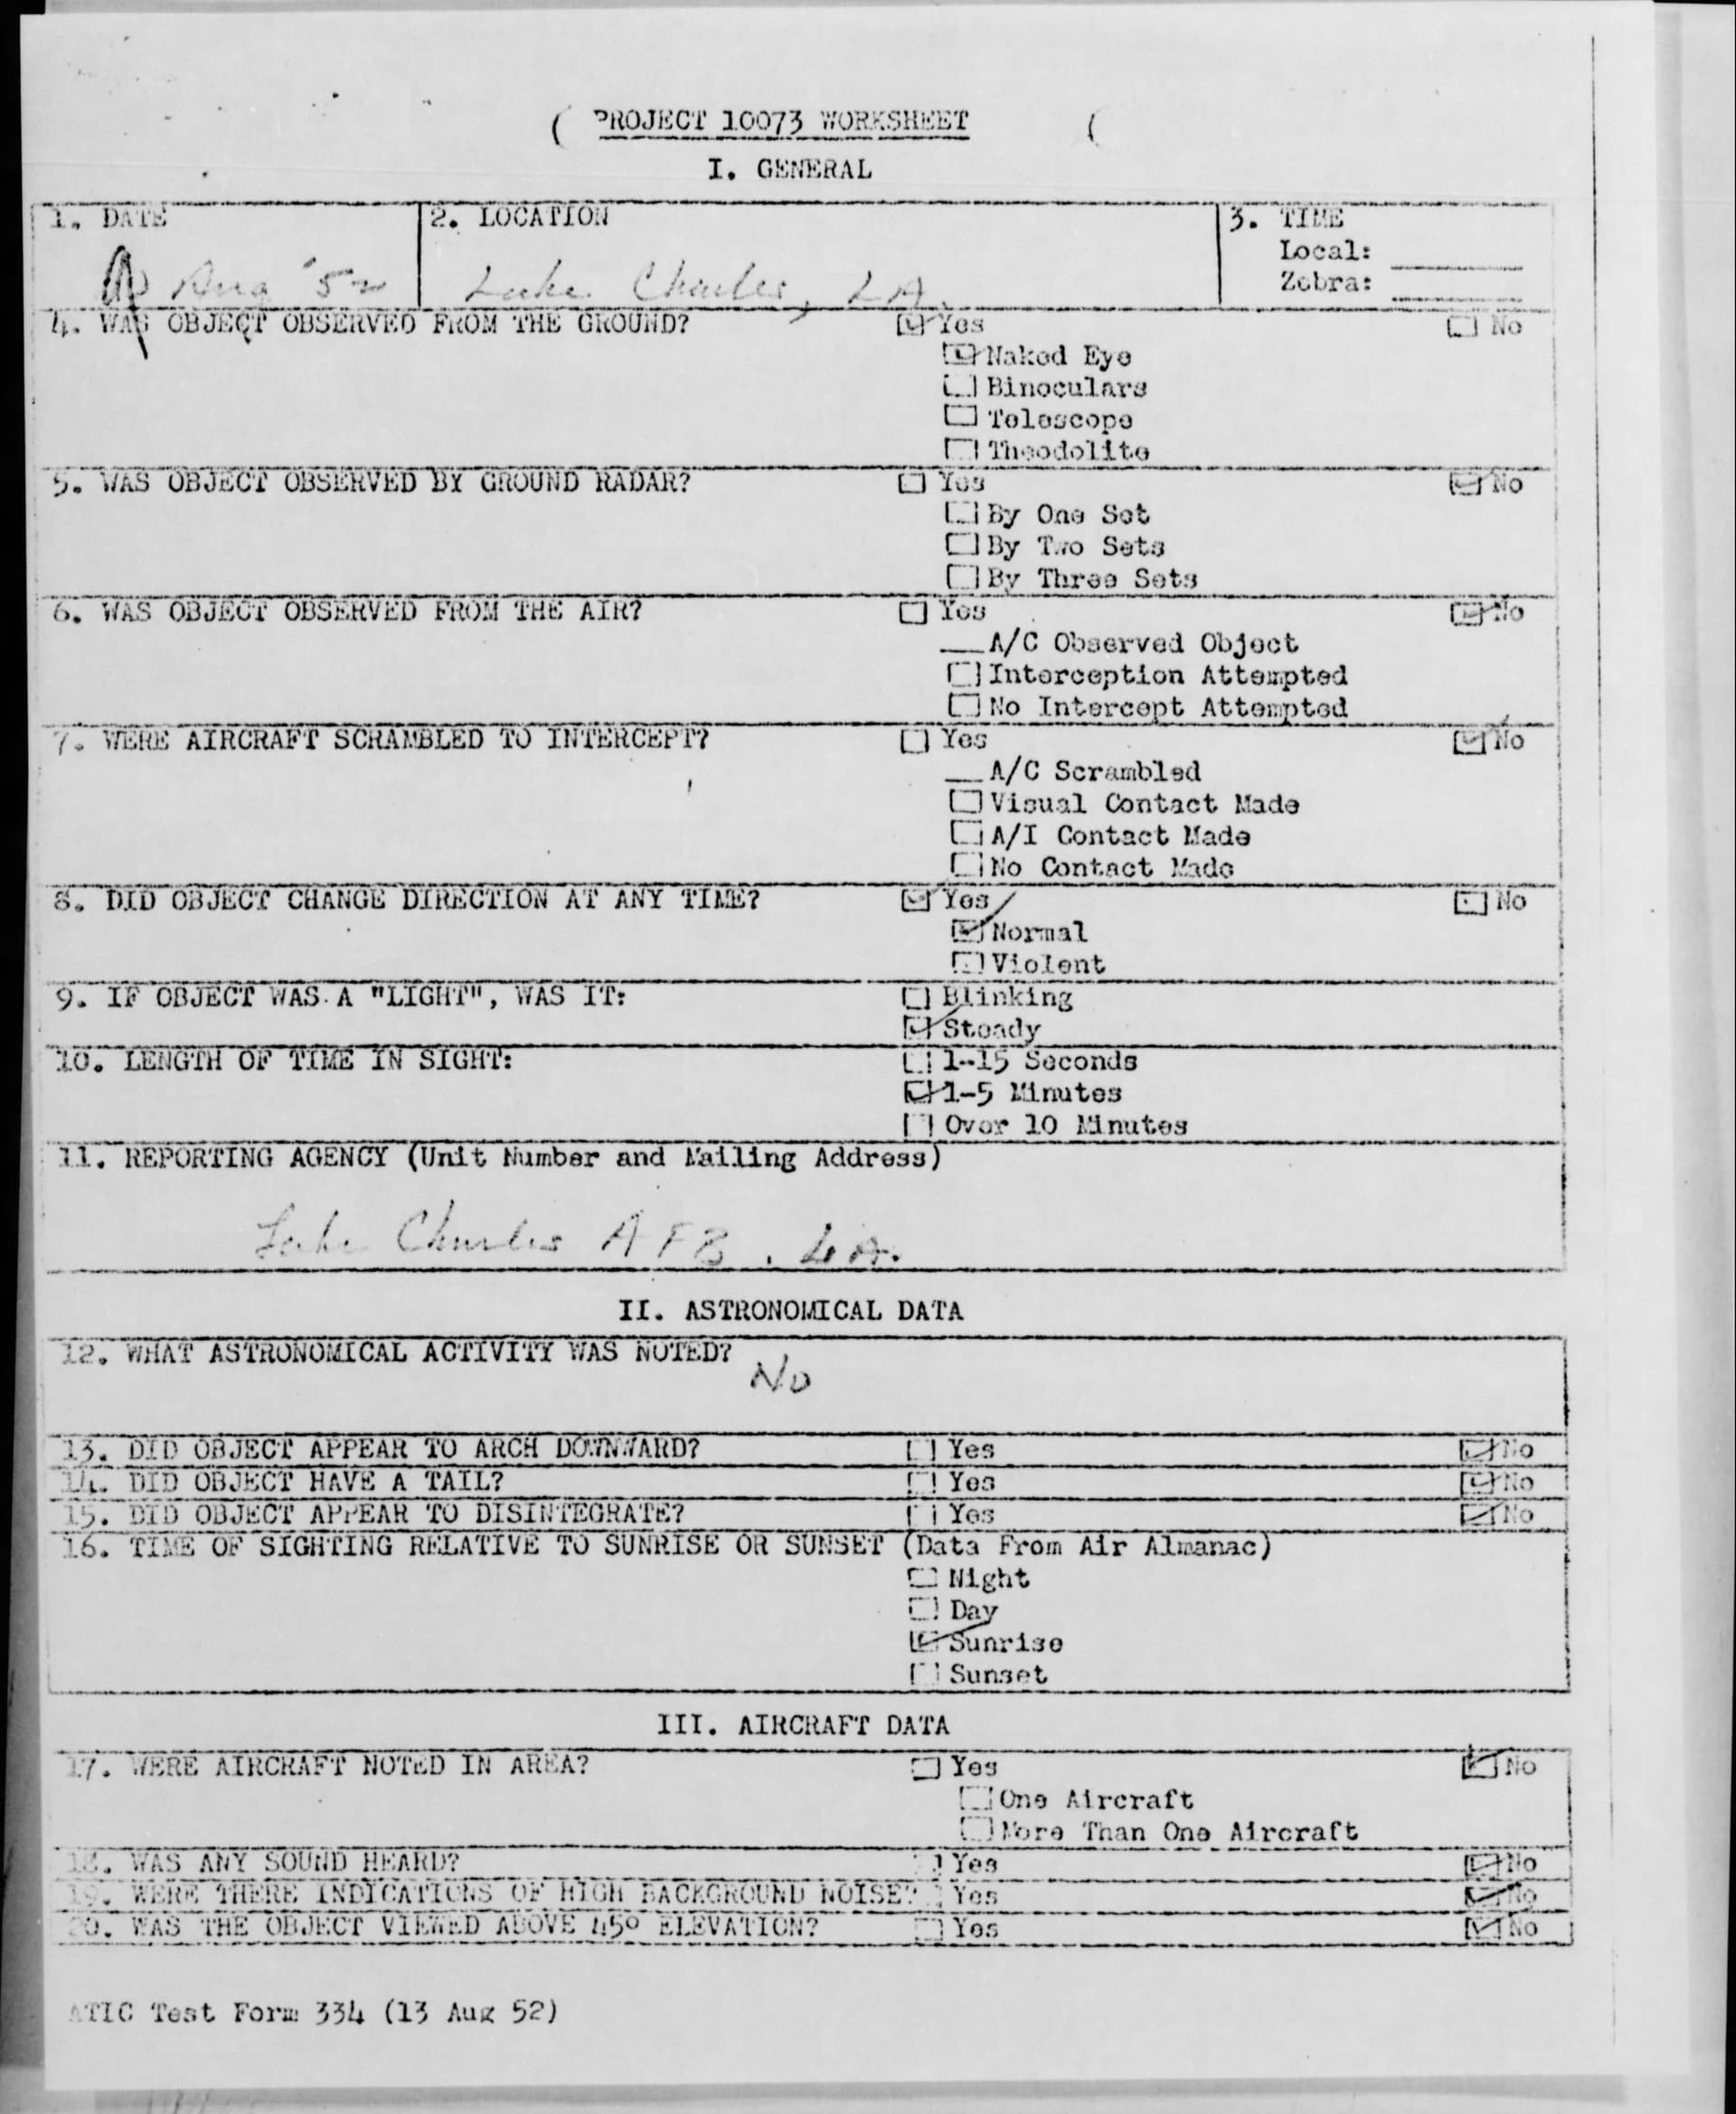 PROJECT 10073 WORKSHEET
I. GENERAL
1. DATE
2. LOCATION
3. TIME
Local:
Zebra:
Aug '52
Lake Charles, LA.
4. WAS OBJECT OBSERVED FROM THE GROUND?
Yes
No
Naked Eye
Binoculars
Telescope
Theodolite
5. WAS OBJECT OBSERVED BY GROUND RADAR?
Yes
No
By One Set
By Two Sets
By Three Sets
6. WAS OBJECT OBSERVED FROM THE AIR?
Yes
No
A/C Observed Object
Interception Attempted
No Intercept Attempted
7. WERE AIRCRAFT SCRAMBLED TO INTERCEPT?
Yes
No
A/C Scrambled
Visual Contact Made
A/I Contact Made
No Contact Made
8. DID OBJECT CHANGE DIRECTION AT ANY TIME?
Yes
No
Normal
Violent
9. IF OBJECT WAS A "LIGHT", WAS IT:
Blinking
Steady
10. LENGTH OF TIME IN SIGHT:
1-15 Seconds
1-5 Minutes
Over 10 Minutes
11. REPORTING AGENCY (Unit Number and Mailing Address)
Lake Charles AFB, LA.
II. ASTRONOMICAL DATA
12. WHAT ASTRONOMICAL ACTIVITY WAS NOTED?
No
13. DID OBJECT APPEAR TO ARCH DOWNWARD?
Yes
No
14. DID OBJECT HAVE A TAIL?
Yes
No
15. DID OBJECT APPEAR TO DISINTEGRATE?
Yes
No
16. TIME OF SIGHTING RELATIVE TO SUNRISE OR SUNSET (Data From Air Almanac)
Night
Day
Sunrise
Sunset
III. AIRCRAFT DATA
17. WERE AIRCRAFT NOTED IN AREA?
Yes
No
One Aircraft
More Than One Aircraft
18. WAS ANY SOUND HEARD?
Yes
No
19. WERE THERE INDICATIONS OF HIGH BACKGROUND NOISE?
Yes
No
20. WAS THE OBJECT VIEWED ABOVE 45° ELEVATION?
Yes
No
ATIC Test Form 334 (13 Aug 52)